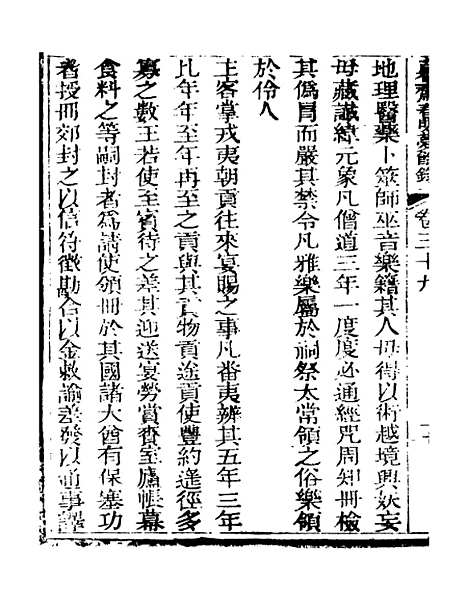 春明夢餘錄
卷三十九
地理醫藥卜筮師巫音樂籍其人毋得以術越境興妖妄
毋藏讖緯元象凡僧道三年一度度必通經咒周知冊檢
其僞冒而嚴其禁令凡雅樂屬於祠祭太常領之俗樂領
於伶人
主客掌戎夷朝貢往來宴賜之事凡番夷辨其五年三年
比年年至年再至之貢與其貢物貢途貢使豐約遠徑多
寡之數王若使至賓待之差其迎送宴勞賞賚至廬帳幕
食料之等嗣封者爲請使領冊於其國諸大酋有保塞功
者授冊郊封之以信符徵勘合以金敕諭差發以通事譯